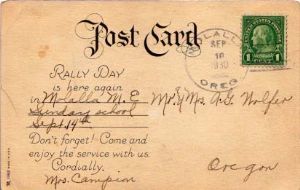 Post Card
MOLALLA
SEP
10
1930
OREG.
1 CENT 1
RALLY DAY
is here again
in Molalla M.E.
Sunday school
Sept 14th
Don't forget! Come and
enjoy the service with us.
Cordially,
Mrs. Campion
Mr & Mrs A G Wolfer
Oregon